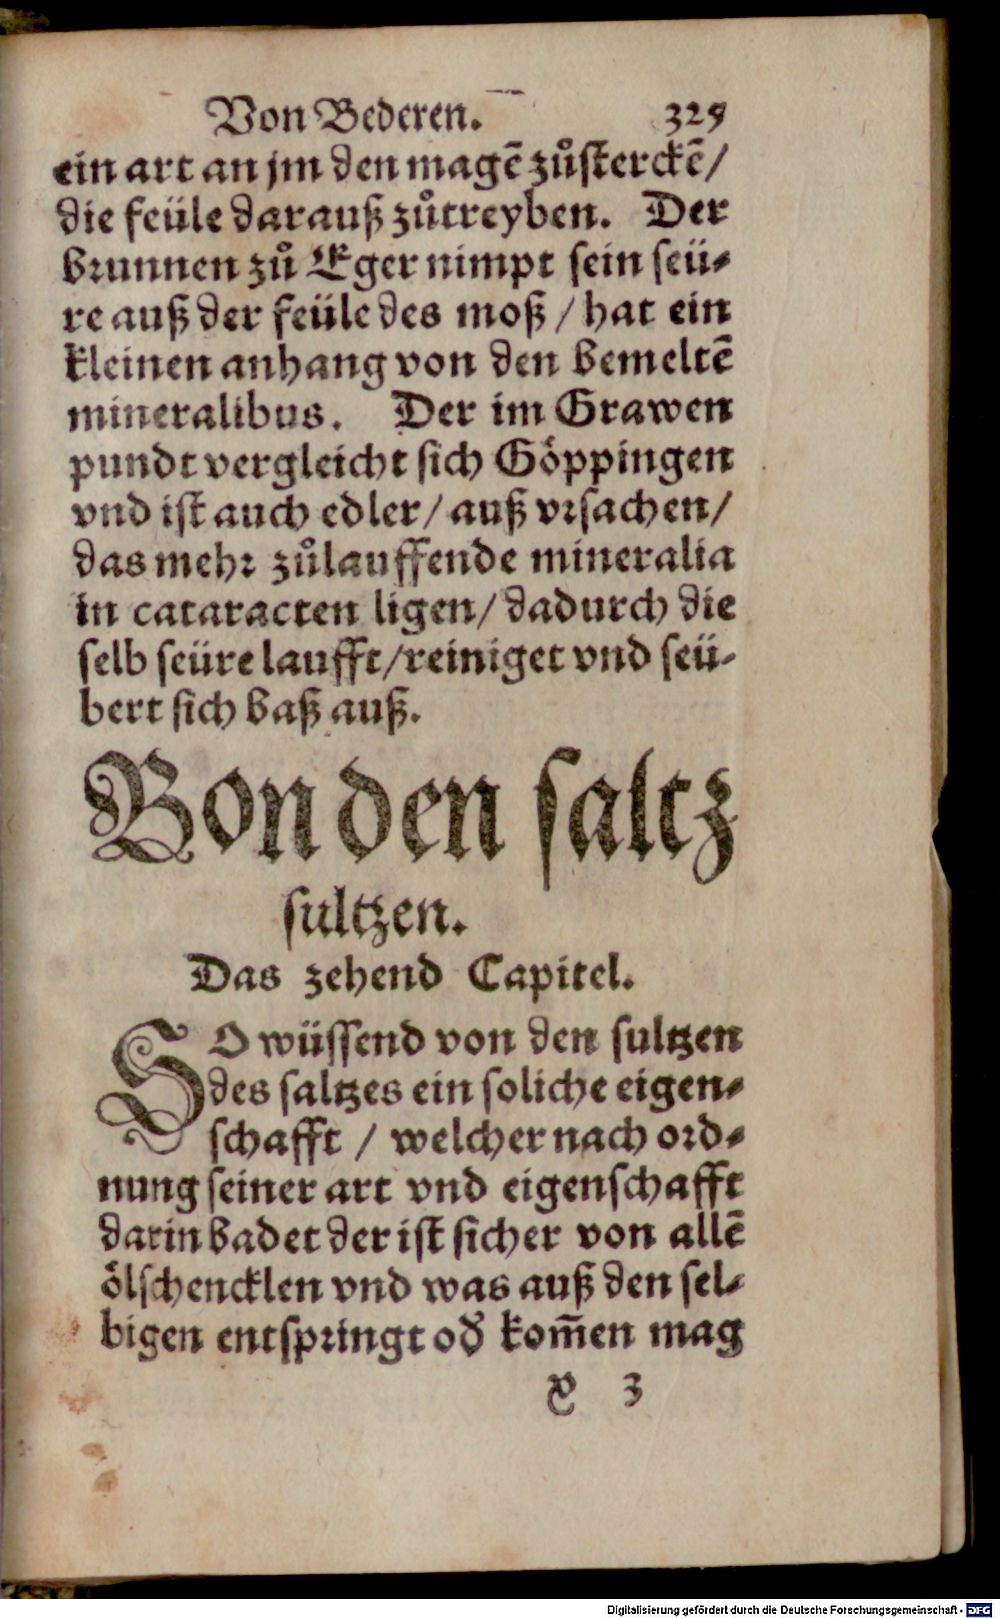 Von Bederen. 325
ein art an jm den magē zů sterckē/
die feüle darauß zůtreyben. Der
brunnen zů Eger nimpt sein seü-
re auß der feüle des moß / hat ein
kleinen anhang von den bemeltē
mineralibus. Der im Grawen
pundt vergleicht sich Göppingen
vnd ist auch edler / auß vrsachen/
das mehr zůlauffende mineralia
in cataracten ligen / dadurch die
selb seüre laufft/reiniget vnd seü-
bert sich baß auß.
Von den saltz
sultzen.
Das zehend Capitel.
SO wüssend von den sultzen
des saltzes ein soliche eigen-
schafft / welcher nach ord-
nung seiner art vnd eigenschafft
darin badet der ist sicher von allē
ölschencklen vnd was auß den sel-
bigen entspringt od' kom̄en mag
X 3
Digitalisierung gefördert durch die Deutsche Forschungsgemeinschaft - DFG